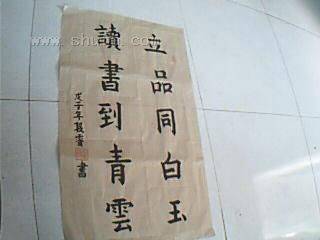 立品同白玉
讀書到青雲
戊子年
書